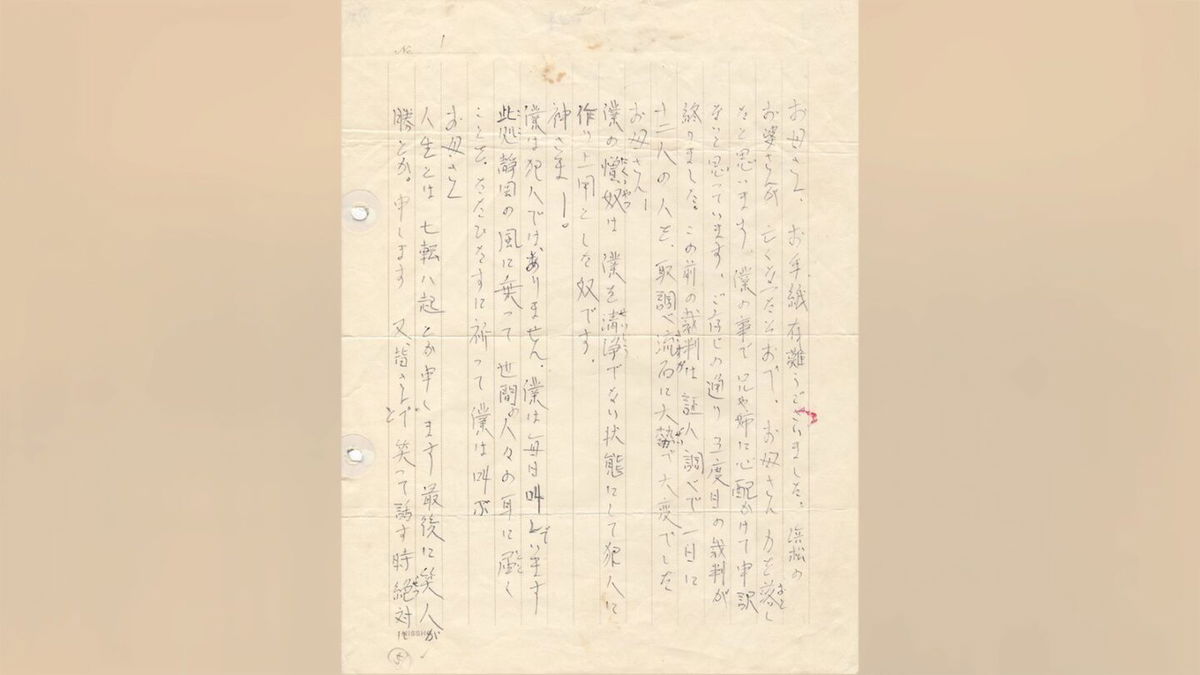 No. 1
お母さん、お手紙有難うございました。浜松の
お婆さんも亡くなったそおで、お母さん力を落し
たと思います、僕の事で兄や姉に心配かけて申訳
ないと思っています、ご存じの通り 三度目の裁判が
終りました。この前の裁判は 証人調べで 一日に
十二人の人を、取調べ 流石に大勢で大変でした
お母さん!
僕の憎い奴は 僕を清浄でない状態にして犯人に
作り上用とした奴です、
神さまー。
僕は犯人では、ありません、僕は毎日叫んでいます
此処静岡の風に乗って 世間の人々の耳に届く
ことを、ただひたすに祈って 僕は叫ぶ
お母さん
人生とは 七転八起とか申します 最後に笑人が
勝とか。申します 又、皆さんと 笑って話す時絶対に